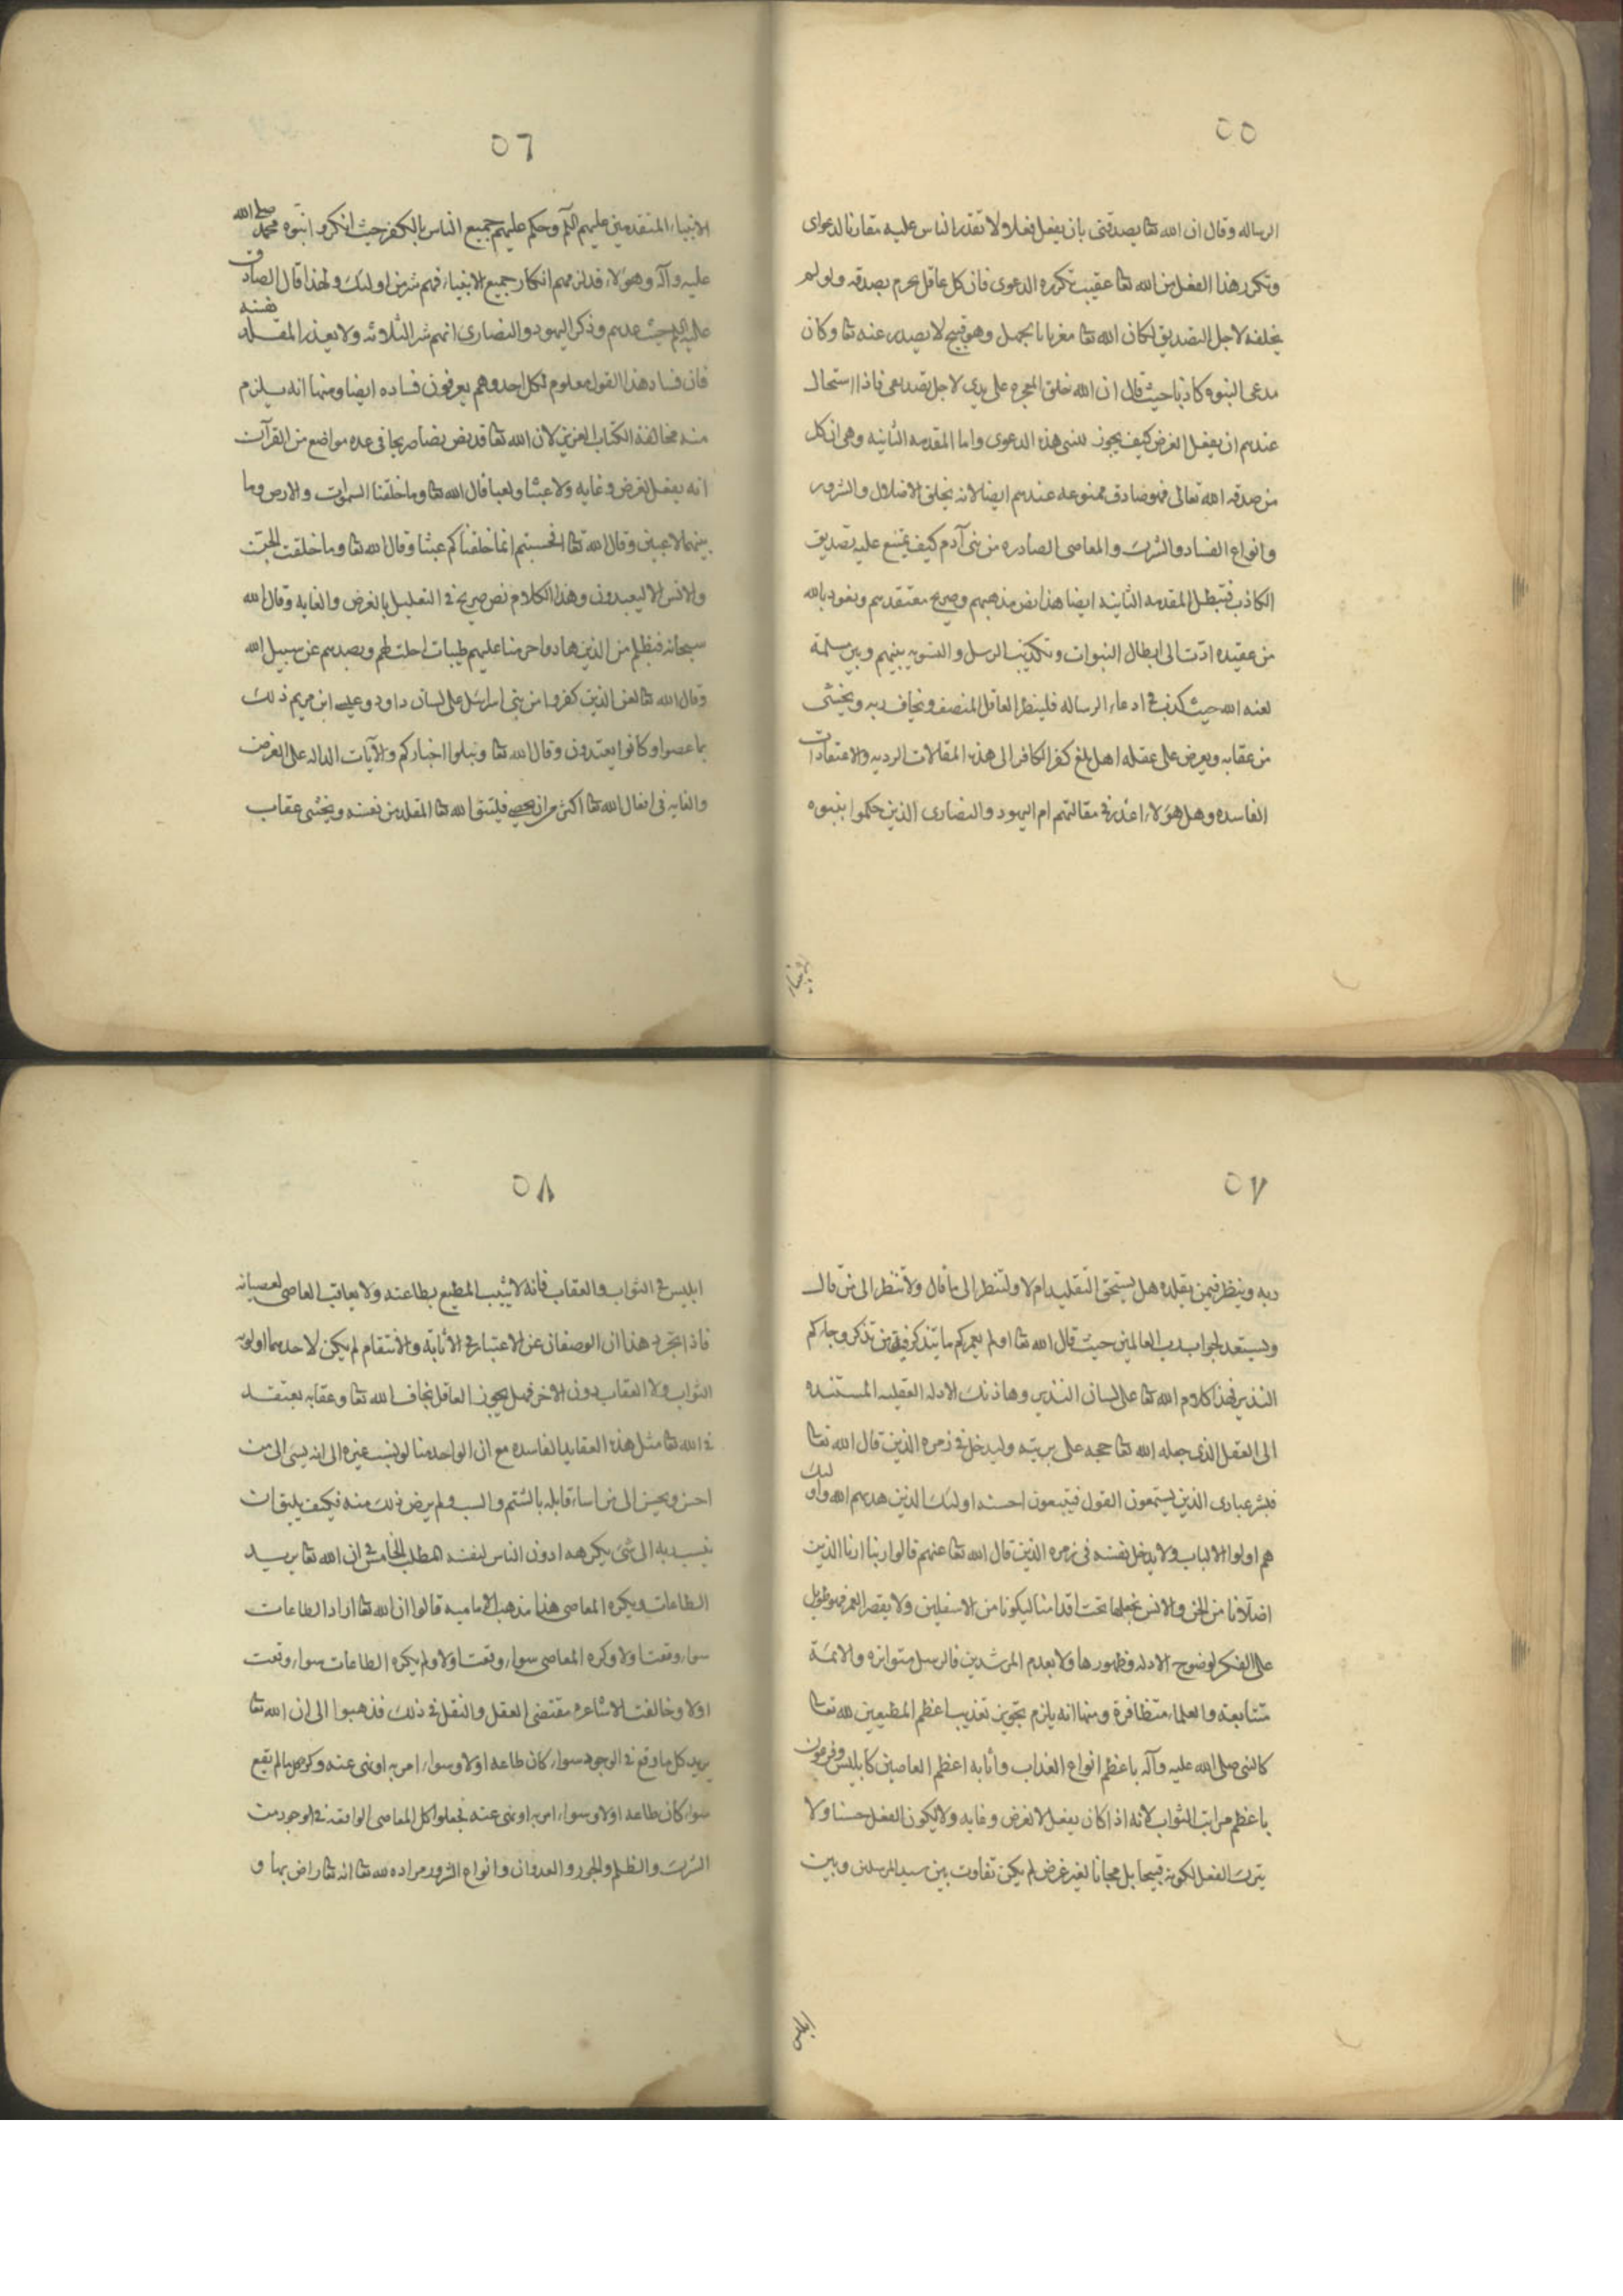 ٥٥
الرساله وقال ان الله تعا يصدقنى بان يفعل فعلا ولا تقدر الناس عليه مقارنا لدعواى
وتكرر هذا الفعل من الله تعا عقيب تكرره الدعوى فان كل عاقل يجزم بصدقه ولو لم
يخلقه لاجل التصديق لكان الله تعا مغريا بالجهل وهو قبيح لا يصدر عنه تعا وكان
مدعى النبوه كاذبا حيث قال ان الله خلق المعجزه على يدى لاجل تصديقى فاذا استحال
عندهم ان يفعل لغرض كيف يجوز للنبى هذه الدعوى واما المقدمه الثانيه وهى ان كل
من صدقه الله تعالى فهو صادق ممنوعه عندهم ايضا لانه يخلق الاضلال والشرور
وانواع الفساد والشرك والمعاصى الصادره من بنى آدم كيف يمتنع عليه تصديق
الكاذب فتبطل المقدمه الثانيه ايضا هذا نص مذهبهم وصريح معتقدهم ونعوذ بالله
من عقيده ادّت الى ابطال النبوات وتكذيب الرسل والتسويه بينهم وبين مسلمة
لعنه الله حيث كذب فى ادعاء الرساله فلينظر العاقل المنصف ويخاف ربه ويخشى
من عقابه ويعرض على عقله هل بلغ كفر الكافر الى هذه المقالات الرديه والاعتقادات
الفاسده وهل هؤلاء اعذر فى مقالتهم ام اليهود والنصارى الذين حكموا بنبوه
٥٦
الانبياء المتقدمين عليهم السلم وحكم عليهم جميع الناس بالكفر حيث انكروا نبوه محمد صلى الله
عليه وآله وهؤلاء قد لزمهم انكار جميع الانبياء فهم شر من اولئك ولهذا قال الصادق
عليه السلم حيث عدهم وذكر اليهود والنصارى انهم شر الثلاثه ولا يعذر المقلد نفسه
فان فساد هذا القول معلوم لكل احد وهم يعرفون فساده ايضا ومنها انه يلزم
منه مخالفة الكتاب العزيز لان الله تعا قد نص نصا صريحا فى عده مواضع من القرآن
انه يفعل لغرض وغايه ولا عبثا ولعبا قال الله تعا وما خلقنا السموات والارض وما
بينهما لاعبين وقال الله تعا افحسبتم انما خلقناكم عبثا وقال الله تعا وما خلقت الجن
والانس الا ليعبدون وهذا الكلام نص صريح فى التعليل بالغرض والغايه وقال الله
سبحانه فبظلم من الذين هادوا حرمنا عليهم طيبات احلت لهم وبصدهم عن سبيل الله
وقال الله تعا لعن الذين كفروا من بنى اسرائيل على لسان داود وعيسى ابن مريم ذلك
بما عصوا وكانوا يعتدون وقال الله تعا ونبلوا اخباركم والآيات الداله على الغرض
والغايه فى افعال الله تعا اكثر من ان يحصى فليتق الله تعا المقلد من نفسه ويخشى عقاب
٥٧
ربه وينظر فيمن يقلده هل يستحق التقليد ام لا ولتنظر الى ما قال ولا تنظر الى من قال
وليستعد لجواب رب العالمين حيث قال الله تعا اولم نعمركم ما يتذكر فيه من تذكر وجاءكم
النذير فهذا كلام الله تعا على لسان النذير وهاذيك الادله العقليه المستنده
الى العقل الذى جعله الله تعا حجه على بريته وليدخل فى زمره الذين قال الله تعا
فبشر عبادى الذين يستمعون القول فيتبعون احسنه اولئك الذين هديهم الله واولئك
هم اولوا الالباب ولا يدخل نفسه فى زمره الذين قال الله تعا عنهم قالوا ربنا ارنا الذين
اضلّانا من الجن والانس نجعلهما تحت اقدامنا ليكونا من الاسفلين ولا يقصر العمر فهو طويل
على الفكر لوضوح الادله وظهورها ولا بعدم المرشدين فالرسل متواتره والائمة
متتابعة والعلماء متظافرة ومنها انه يلزم تجويز تعذيب اعظم المطيعين لله تعا
كالنبى صلى الله عليه وآله باعظم انواع العذاب واثابه اعظم العاصين كابليس وفرعون
باعظم مراتب الثواب لانه اذا كان يفعل لا لغرض وغايه ولا ليكون الفعل حسنا ولا
يترك الفعل لكونه قبيحا بل مجانا لغير غرض لم يكن تفاوت بين سيد المرسلين وبين
ابليس
٥٨
ابليس فى الثواب والعقاب فانه لا يثيب المطيع بطاعته ولا يعاقب العاصى لعصيانه
فاذا تجرد هذان الوصفان عن الاعتبار فى الاثابة والانتقام لم يكن لاحدهما اولويه
الثواب ولا العقاب دون الاخر فهل يجوز العاقل يخاف الله تعا وعقابه يعتقد
فى الله تعا مثل هذه العقايد الفاسده مع ان الواحد منا لو نسب غيره الى انه يسئ الى من
احسن ويحسن الى من اساء قابله بالشتم والسب ولم يرض ذلك منه فكيف يليق ان
ينسب ربه الى شئ يكرهه ادون الناس لنفسه المطلب الخامس فى ان الله تعا يريد
الطاعات ويكره المعاصى هذا مذهب الاماميه قالوا ان الله تعا اراد الطاعات
سواء وقعت او لا وكره المعاصى سواء وقعت او لا ولم يكره الطاعات سواء وقعت
او لا وخالفت الاشاعره مقتضى العقل والنقل فى ذلك فذهبوا الى ان الله تعا
يريد كل ما وقع فى الوجود سواء كان طاعه او لا وسواء امر به او نهى عنه وكره كل ما لم يقع
سواء كان طاعه او لا وسواء امر به او نهى عنه فجعلوا كل المعاصى الواقعه فى الوجود من
الشرك والظلم والجور والعدوان وانواع الشرور مراده لله تعا انه تعا راض بها و